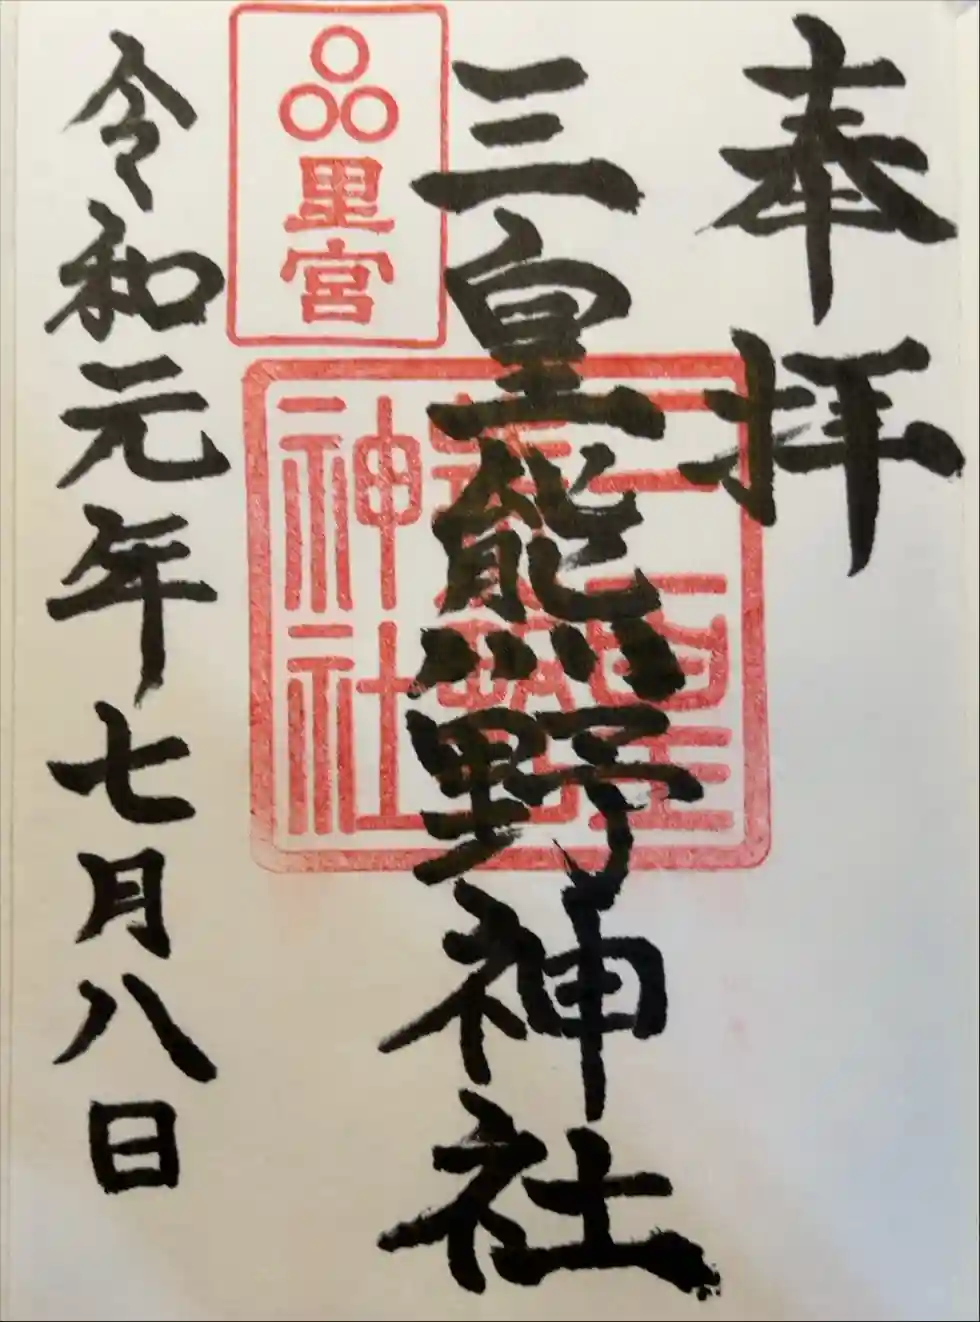 奉拝
三皇熊野神社
里宮
三皇熊野神社
令和元年七月八日